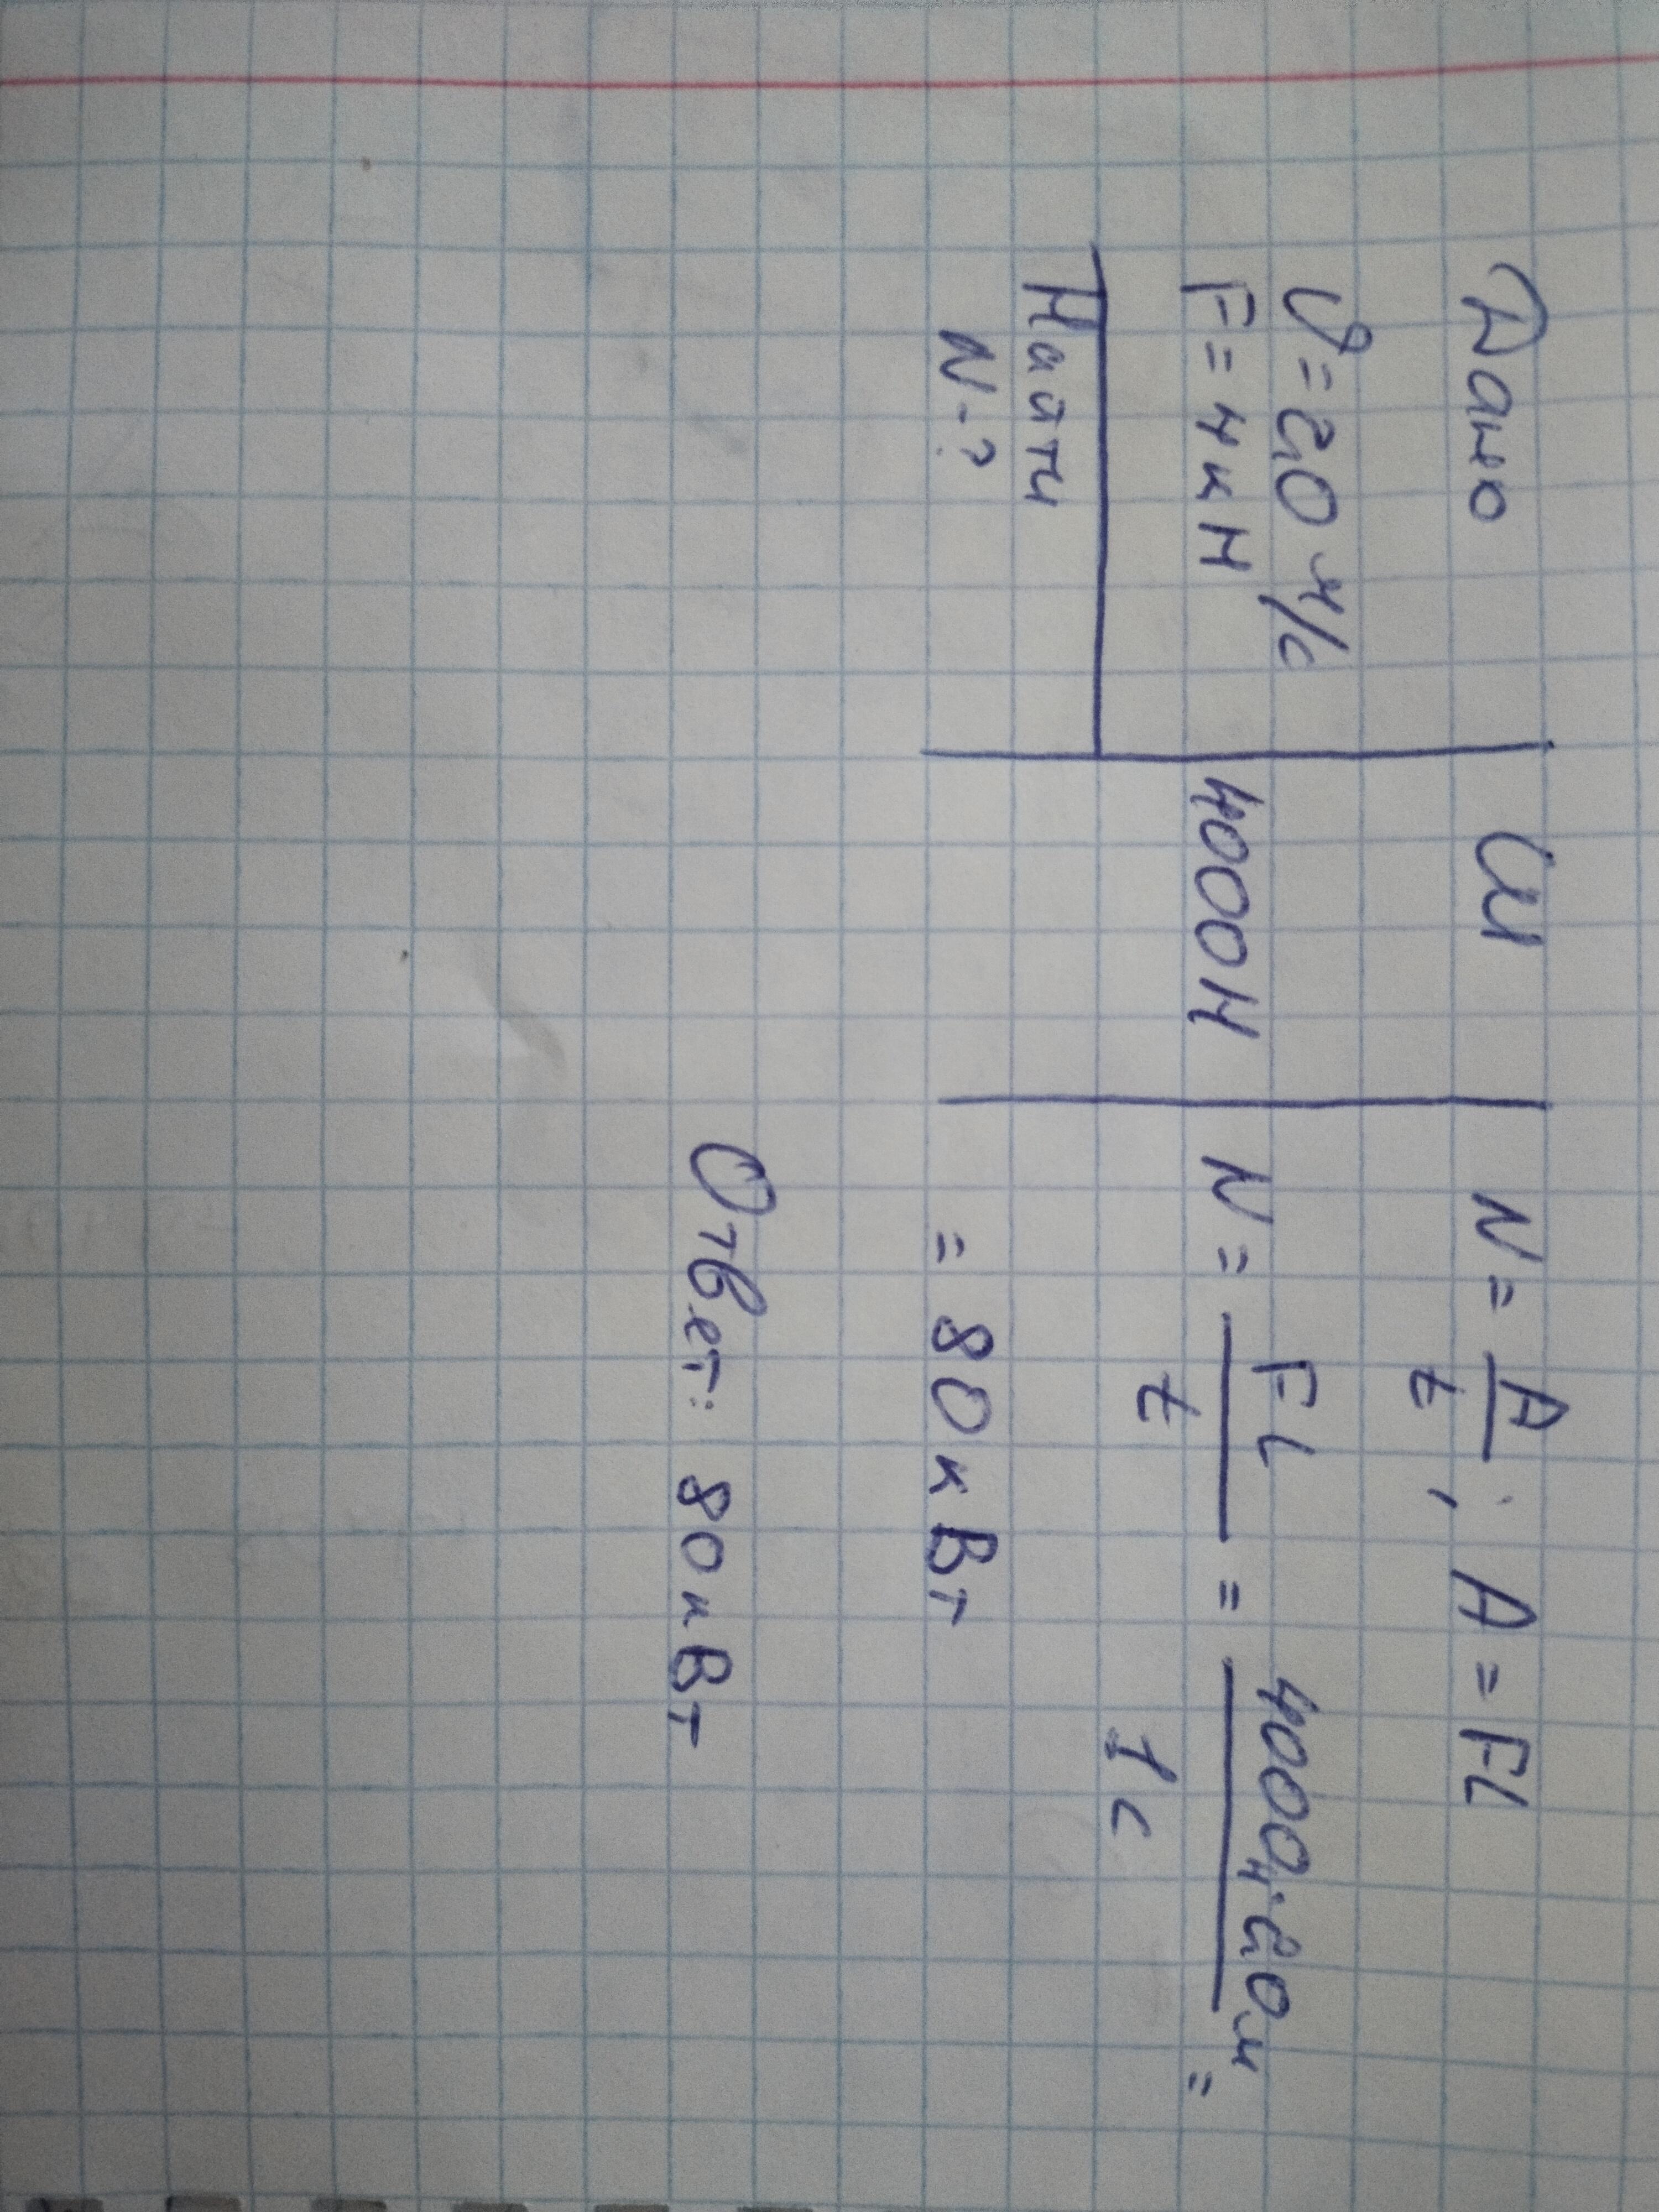 Дано
υ = 20 м/с
F = 4 кН
Найти
N - ?
СИ
4000Н
N = A/t ; A = FL
N = FL/t = 4000н·20м/1с =
= 80 кВт
Ответ: 80 кВт